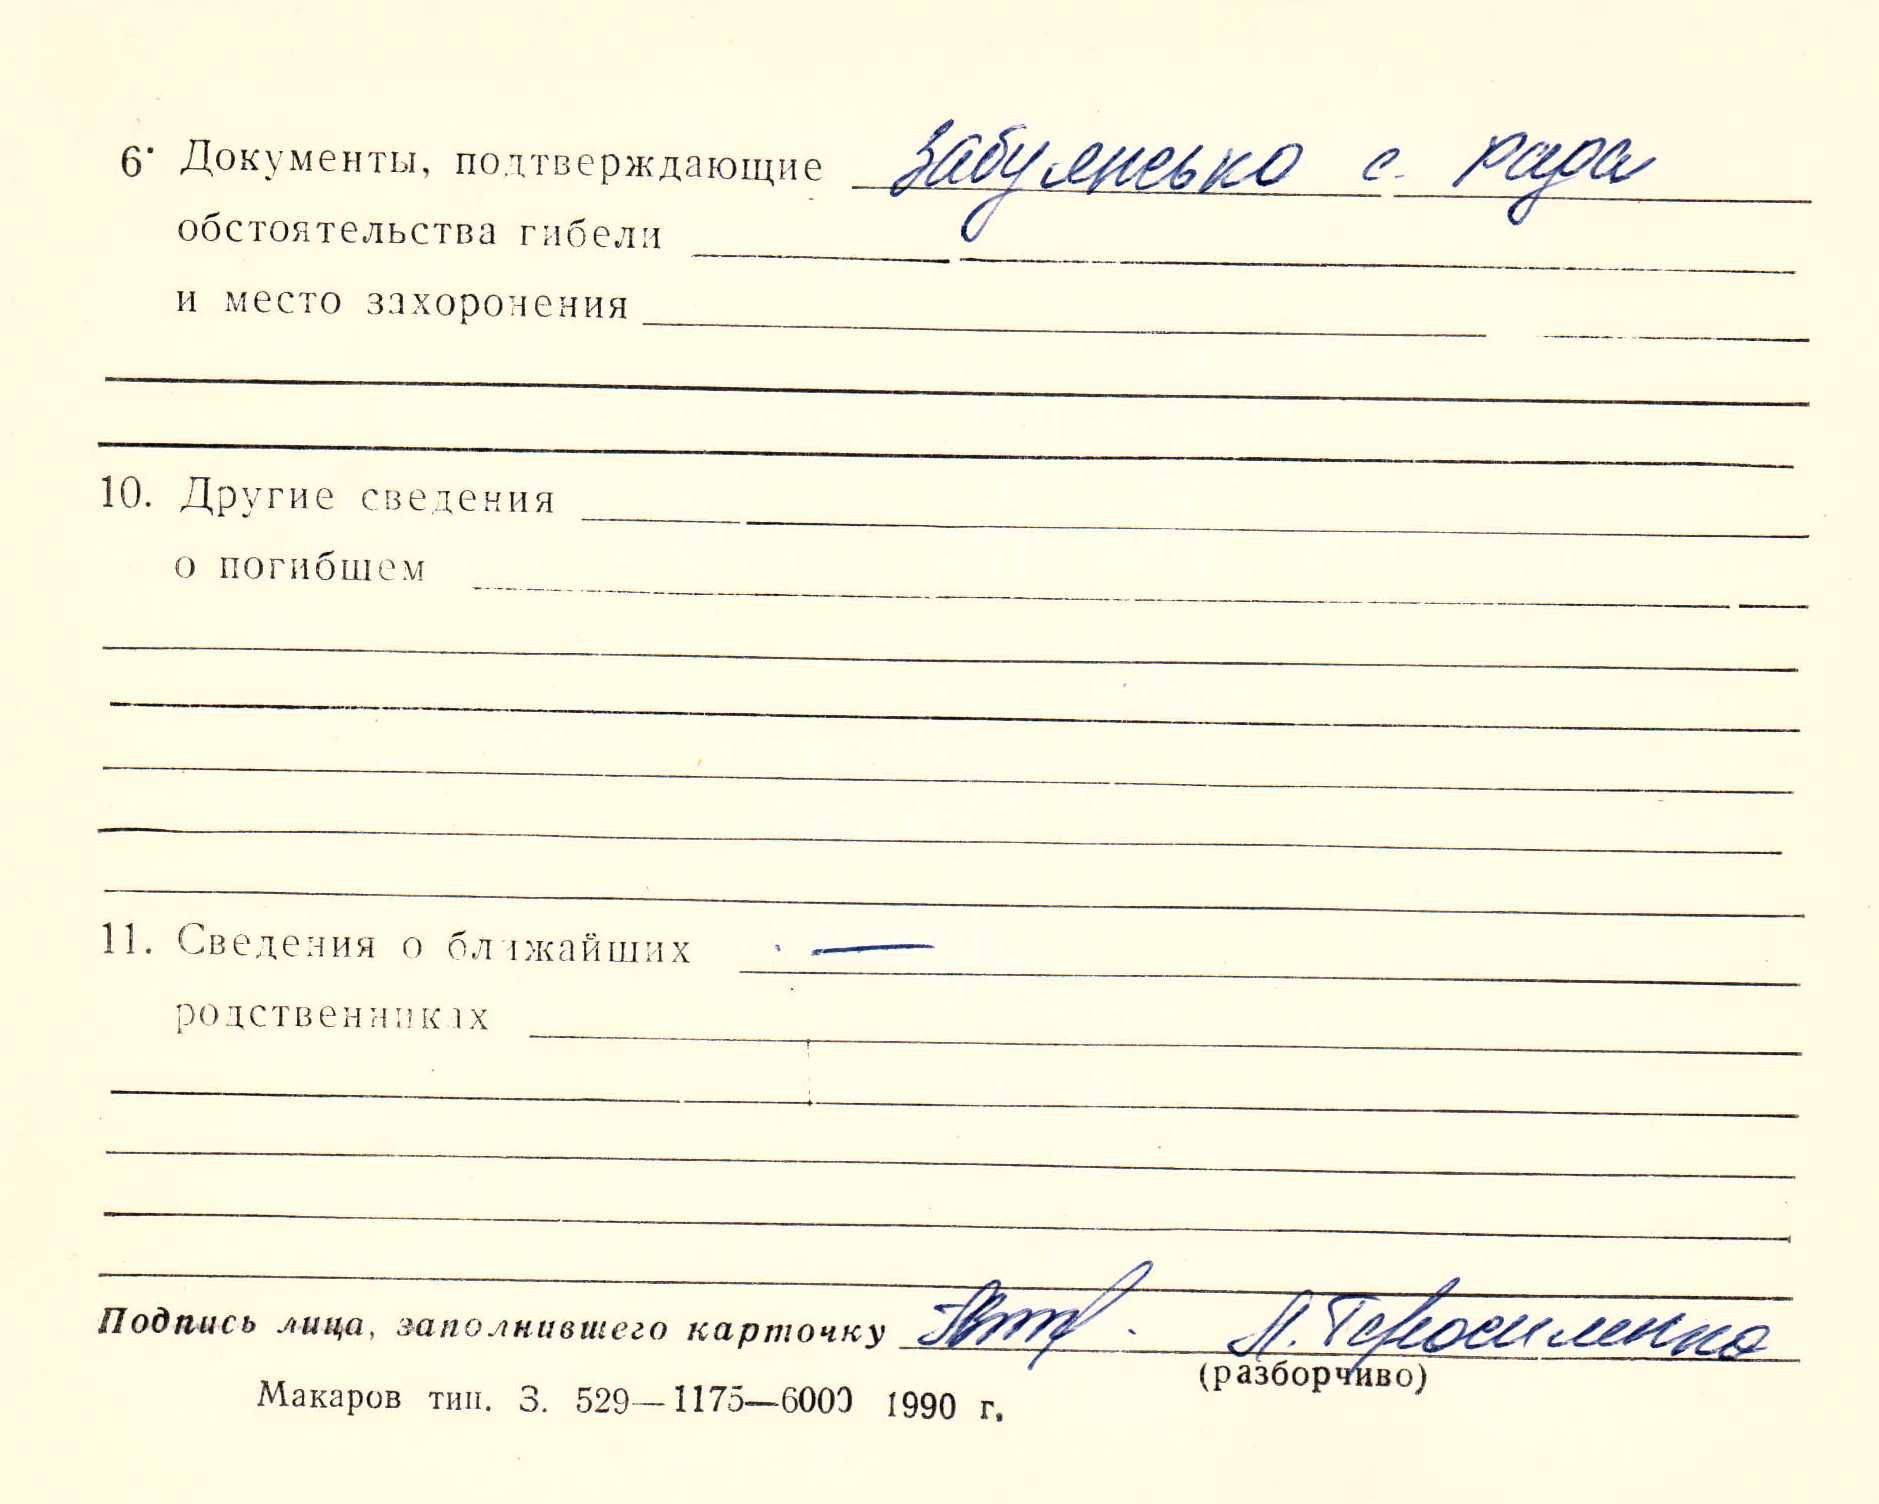 6. Документы, подтверждающие Забуянсько с. рада
обстоятельства гибели
и место захоронения
10. Другие сведения
о погибшем
11. Сведения о ближайших —
родственниках
Подпись лица, заполнившего карточку Л. Герасименко
(разборчиво)
Макаров тип. З. 529—1175—6000 1990 г.